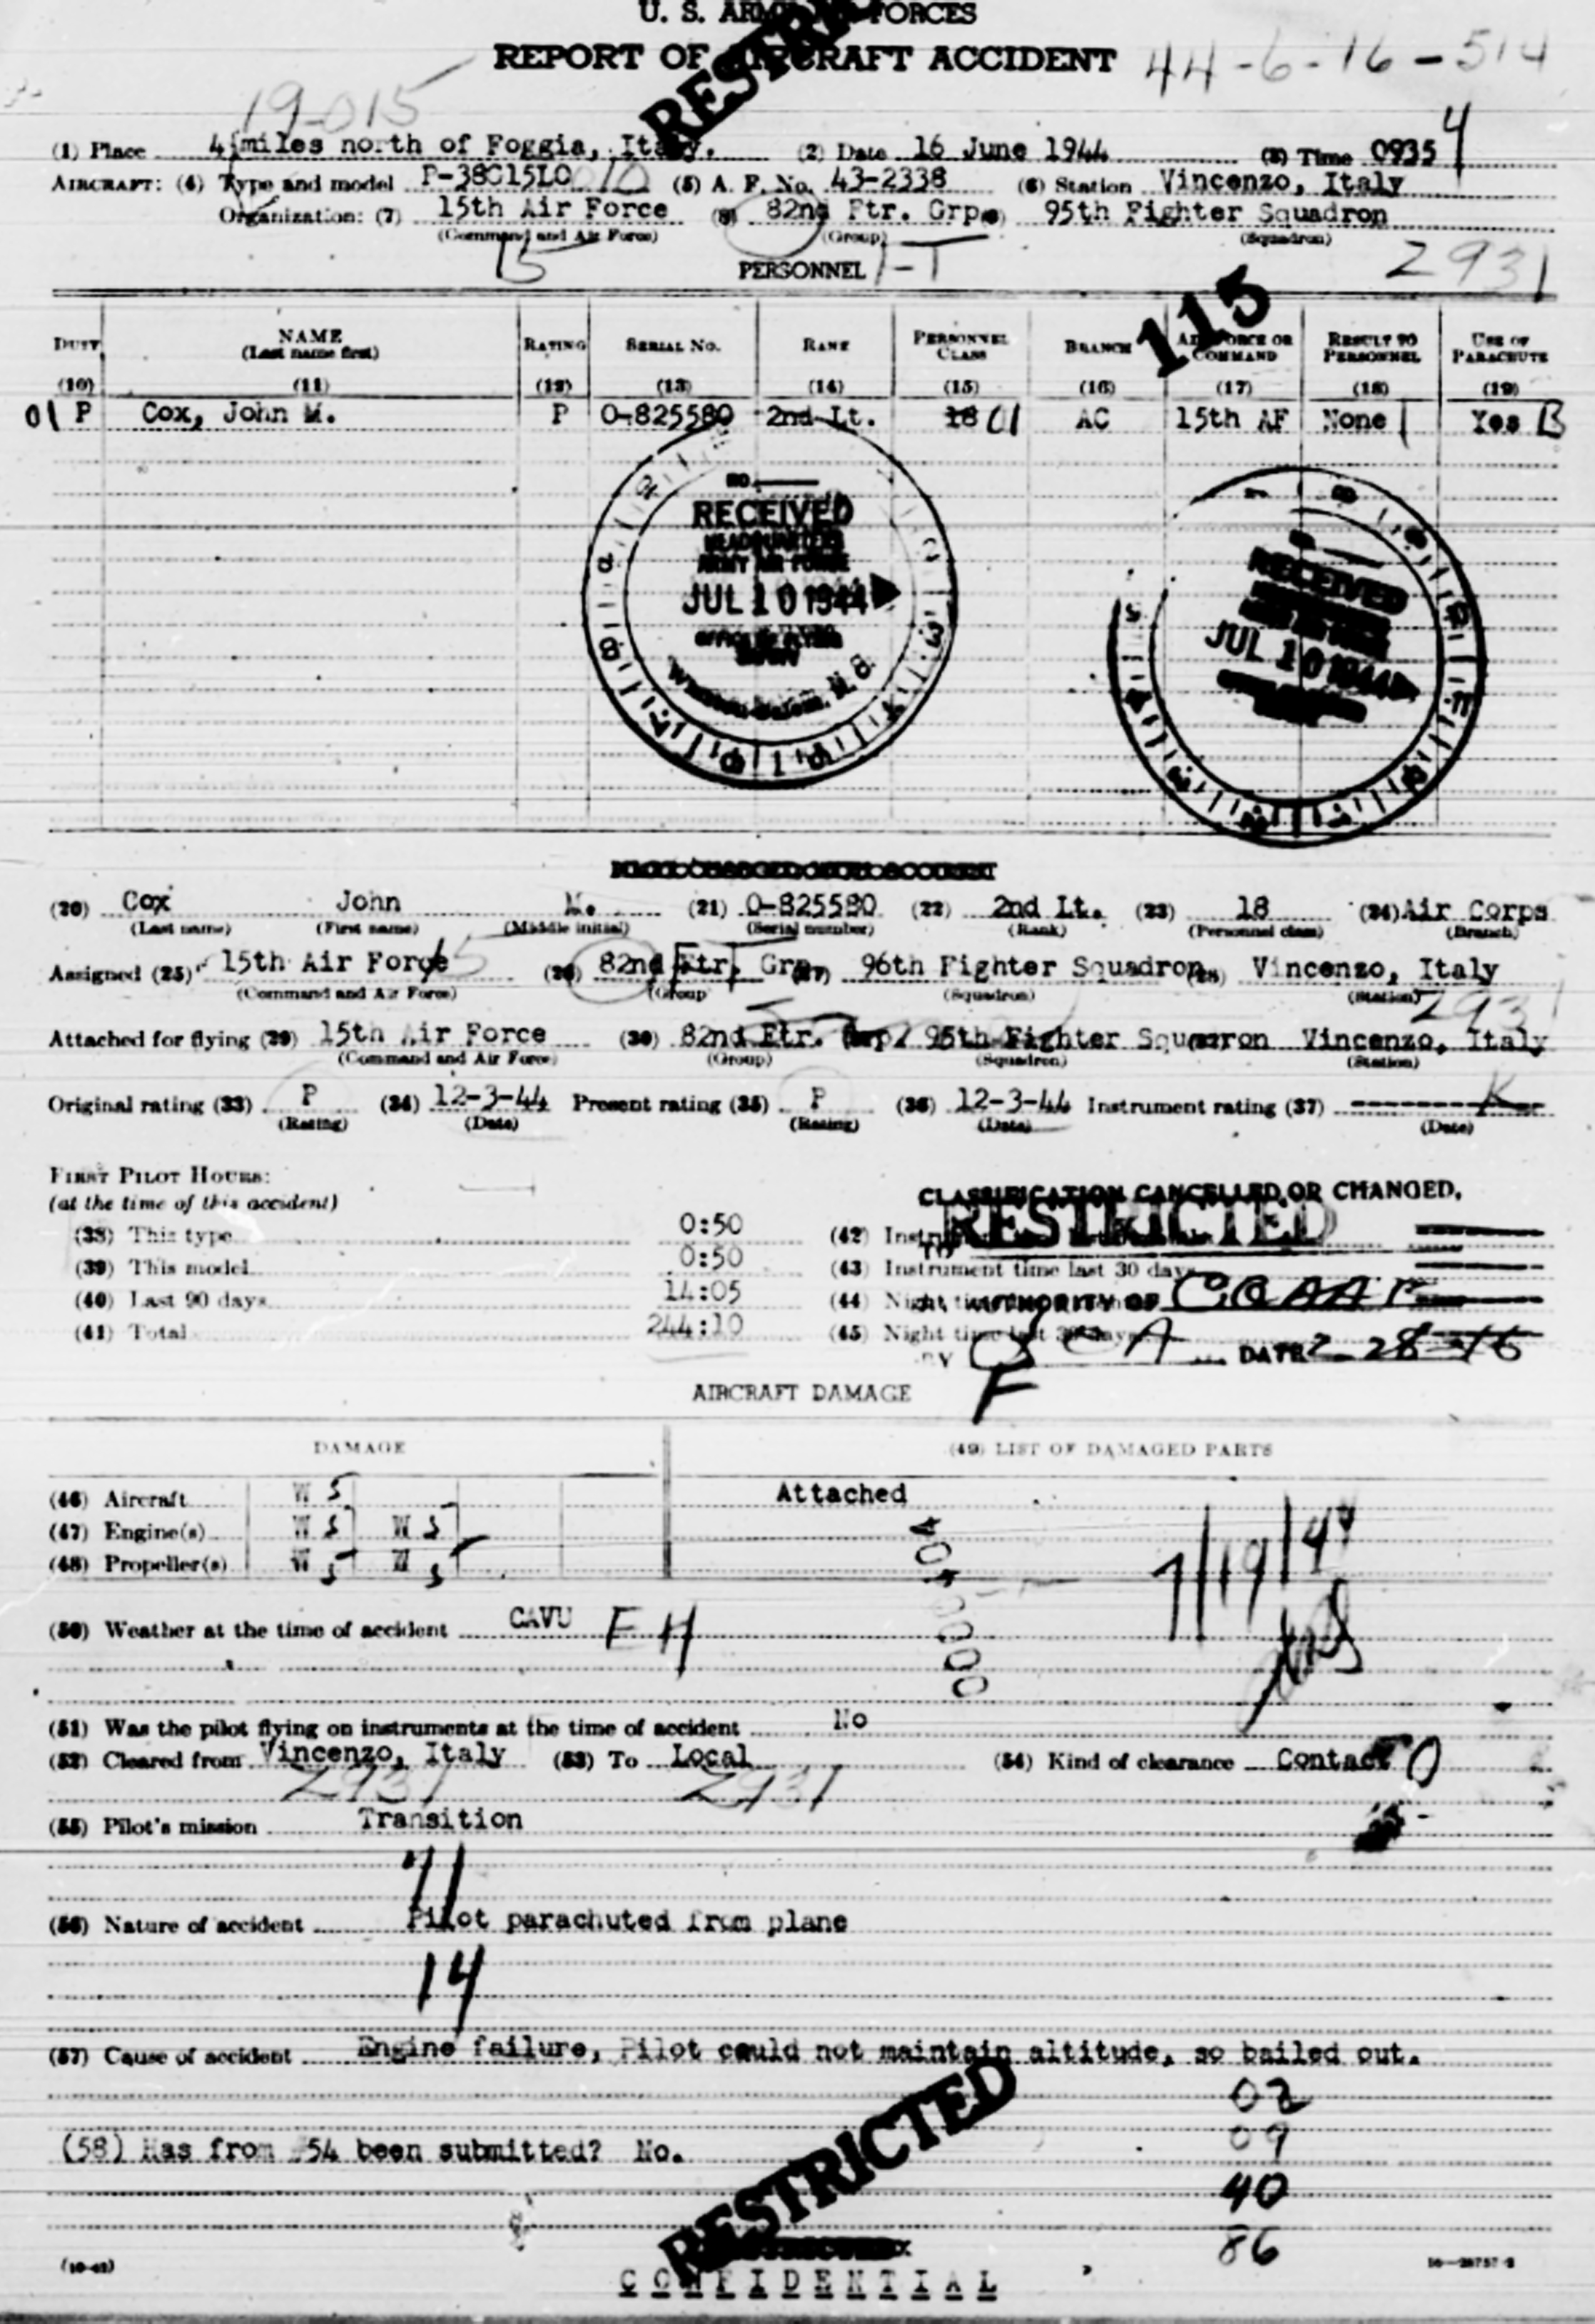 U. S. ARMY FORCES
REPORT OF AIRCRAFT ACCIDENT 44-6-16-514
RESTRICTED
19-015
(1) Place 4 miles north of Foggia, Italy. (2) Date 16 June 1944 (3) Time 0935 4
AIRCRAFT: (4) Type and model P-38G15LO 10 (5) A. F. No. 43-2338 (6) Station Vincenzo, Italy
Organization: (7) 15th Air Force (8) 82nd Ftr. Grp. 95th Fighter Squadron
(Command and Air Force) (Group) (Squadron)
15 PERSONNEL 1-T 2931
115
DUTY NAME (Last name first) RATING SERIAL NO. RANK PERSONNEL CLASS BRANCH AIR FORCE OR COMMAND RESULT TO PERSONNEL USE OF PARACHUTE
(10) (11) (12) (13) (14) (15) (16) (17) (18) (19)
01 P Cox, John M. P O-825580 2nd Lt. 18 01 AC 15th AF None 1 Yes B
RECEIVED
HEADQUARTERS
ARMY AIR FORCE
JUL 10 1944
OFFICE OF FLYING
SAFETY
Winston-Salem, N. C.
RECEIVED
JUL 10 1944
(20) Cox John M. (21) O-825580 (22) 2nd Lt. (23) 18 (24) Air Corps
(Last name) (First name) (Middle initial) (Serial number) (Rank) (Personnel class) (Branch)
Assigned (25) 15th Air Force 5 (26) 82nd Ftr. Grp. (27) 96th Fighter Squadron (28) Vincenzo, Italy
(Command and Air Force) (Group) (Squadron) (Station)
2931
Attached for flying (29) 15th Air Force (30) 82nd Ftr. Grp. 95th Fighter Squadron Vincenzo, Italy
(Command and Air Force) (Group) (Squadron) (Station)
Original rating (33) P (34) 12-3-44 Present rating (35) P (36) 12-3-44 Instrument rating (37)
(Rating) (Date) (Rating) (Date) (Date)
FIRST PILOT HOURS:
(at the time of this accident)
CLASSIFICATION CANCELLED OR CHANGED,
RESTRICTED
(38) This type 0:50 (42)
TO
(39) This model 0:50 (43) Instrument time last 30 days
(40) Last 90 days 14:05 (44)
AUTHORITY OF
(41) Total 244:10 (45) Night time last 30 days
BY DATE
AIRCRAFT DAMAGE F
DAMAGE (49) LIST OF DAMAGED PARTS
(46) Aircraft W 5 Attached
(47) Engine(s) W 5 W 5
(48) Propeller(s) W 5 W 5
7/19/44
(50) Weather at the time of accident CAVU E H
(51) Was the pilot flying on instruments at the time of accident No
(52) Cleared from Vincenzo, Italy (53) To Local (54) Kind of clearance Contact 0
2931 2931
(55) Pilot's mission Transition
71
(56) Nature of accident Pilot parachuted from plane
14
(57) Cause of accident Engine failure, Pilot could not maintain altitude, so bailed out.
02
09
(58) Has from 54 been submitted? No.
40
RESTRICTED
86
(10-42)
CONFIDENTIAL